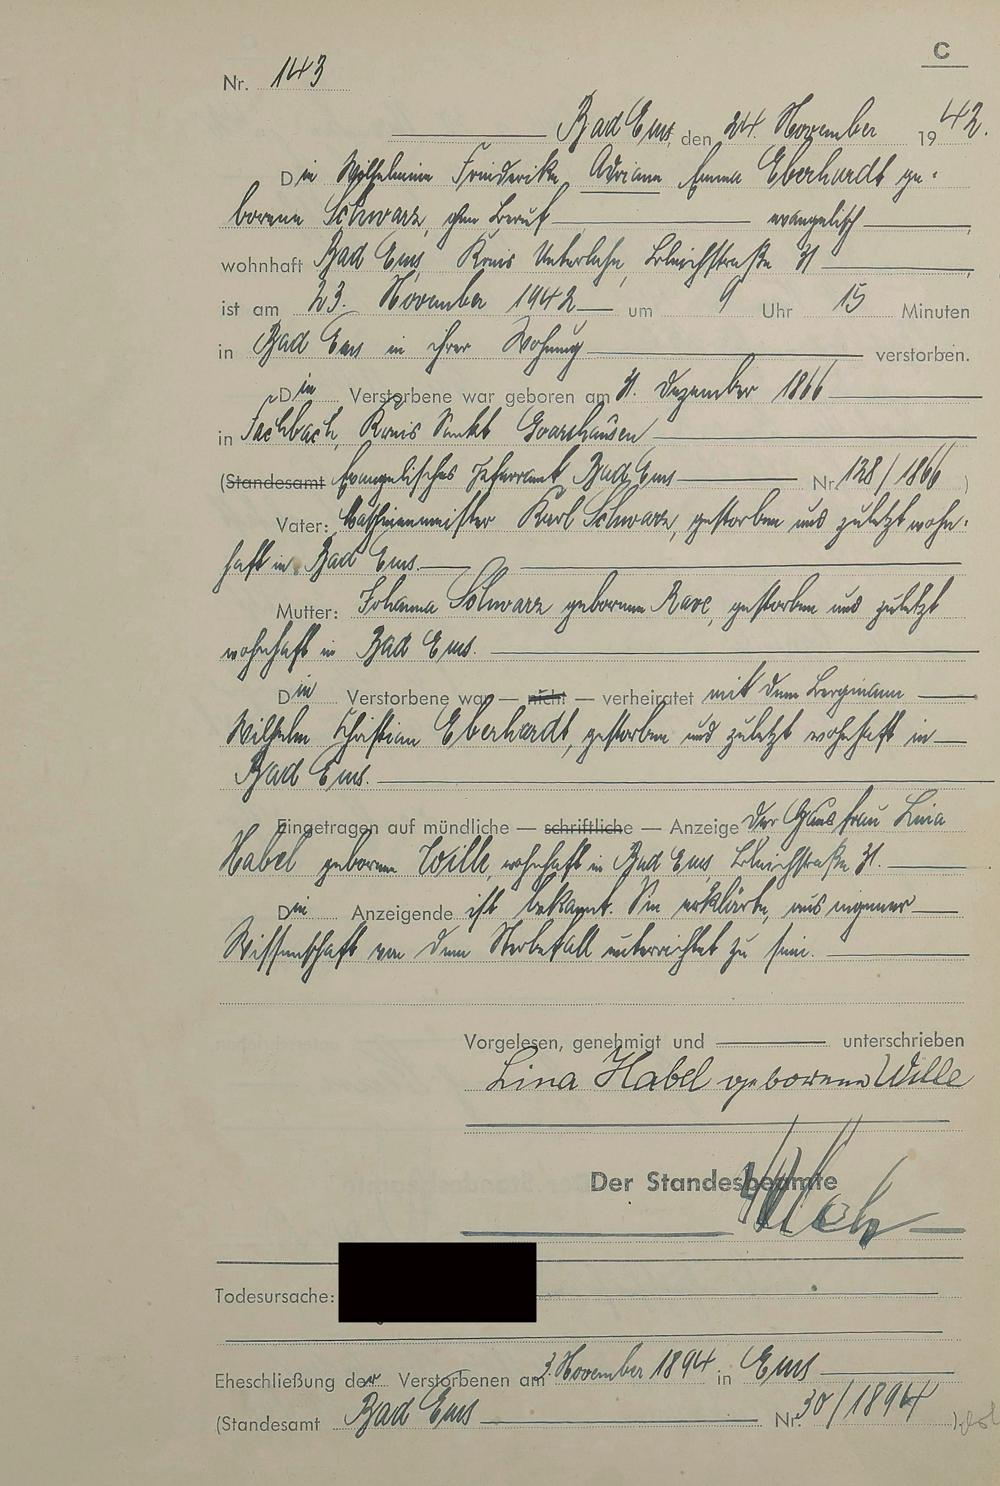 C
Nr. 143
Bad Ems, den 24. November 1942.
Die Wilhelmine Friederike Adriane Emma Eberhardt ge-
borene Schwarz, ohne Beruf evangelisch,
wohnhaft Bad Ems, Kreis Unterlahn, Bleichstraße 31,
ist am 23. November 1942 um 9 Uhr 15 Minuten
in Bad Ems in ihrer Wohnung verstorben.
Die Verstorbene war geboren am 31. Dezember 1866
in Fachbach, Kreis Sankt Goarshausen
(Standesamt Evangelisches Pfarramt Bad Ems Nr. 128/1866)
Vater: Maschinenmeister Karl Schwarz, gestorben und zuletzt wohn-
haft in Bad Ems.
Mutter: Johanna Schwarz geborene Rave, gestorben und zuletzt
wohnhaft in Bad Ems.
Die Verstorbene war — nicht — verheiratet mit dem Bergmann
Wilhelm Christian Eberhardt, gestorben und zuletzt wohnhaft in
Bad Ems.
Eingetragen auf mündliche — schriftliche — Anzeige der Hausfrau Lina
Habel geborene Wille, wohnhaft in Bad Ems, Bleichstraße 31.
Die Anzeigende ist bekannt. Sie erklärte, aus eigener
Wissenschaft von dem Sterbefall unterrichtet zu sein.
Vorgelesen, genehmigt und unterschrieben
Lina Habel geborene Wille
Der Standesbeamte
Todesursache:
Eheschließung der Verstorbenen am 3. November 1894 in Ems
(Standesamt Bad Ems Nr. 30/1894)